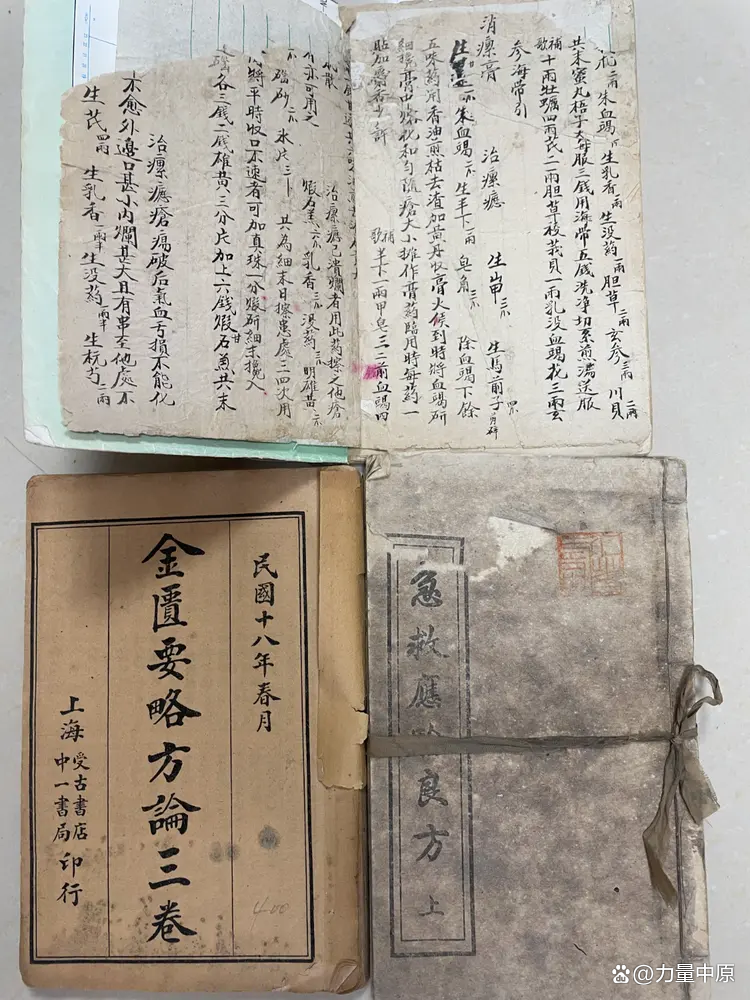 花二兩 朱血竭 生乳香一兩 生没药一兩 胆草二兩 玄参三兩 川貝二兩
共末蜜丸梧子大每服三錢用海帶五錢洗淨切系煎湯送服
補歌 十兩牡蠣四兩芪二兩胆草梭莪貝一兩乳没血竭花三兩玄
参海帶引
消瘰膏 治瘰癧 生 生馬前子
朱血竭 生半下一兩 皂角 除血竭下餘
五味药用香油煎枯去渣加黄丹收膏火候到時將血竭研
細攙膏中熔化和匀随瘡大小攤作膏药臨用時每药一
貼加麝香少許 補歌 半下一兩甲皂三二前血竭四
治瘰癧已潰爛者用此药擦之他瘡
有亦可用之 煅石羔 乳香 没药 明雄黄
硼砂 冰片 共為細末日擦患處三四次用
將平時收口不速者可加真珠一分煅研細末攙入
硼各三錢二錢雄黄三分片加上六錢煅石羔共末
治瘰癧瘡瘍破后氣血亏損不能化
不愈外邊口甚小内爛甚大且有串至他處不
生芪四兩 生乳香 生没药 生杭芍二兩
民國十八年春月
金匱要略方論三卷
上海
受古書店
中一書局
印行
400
急救應驗良方 上
@力量中原